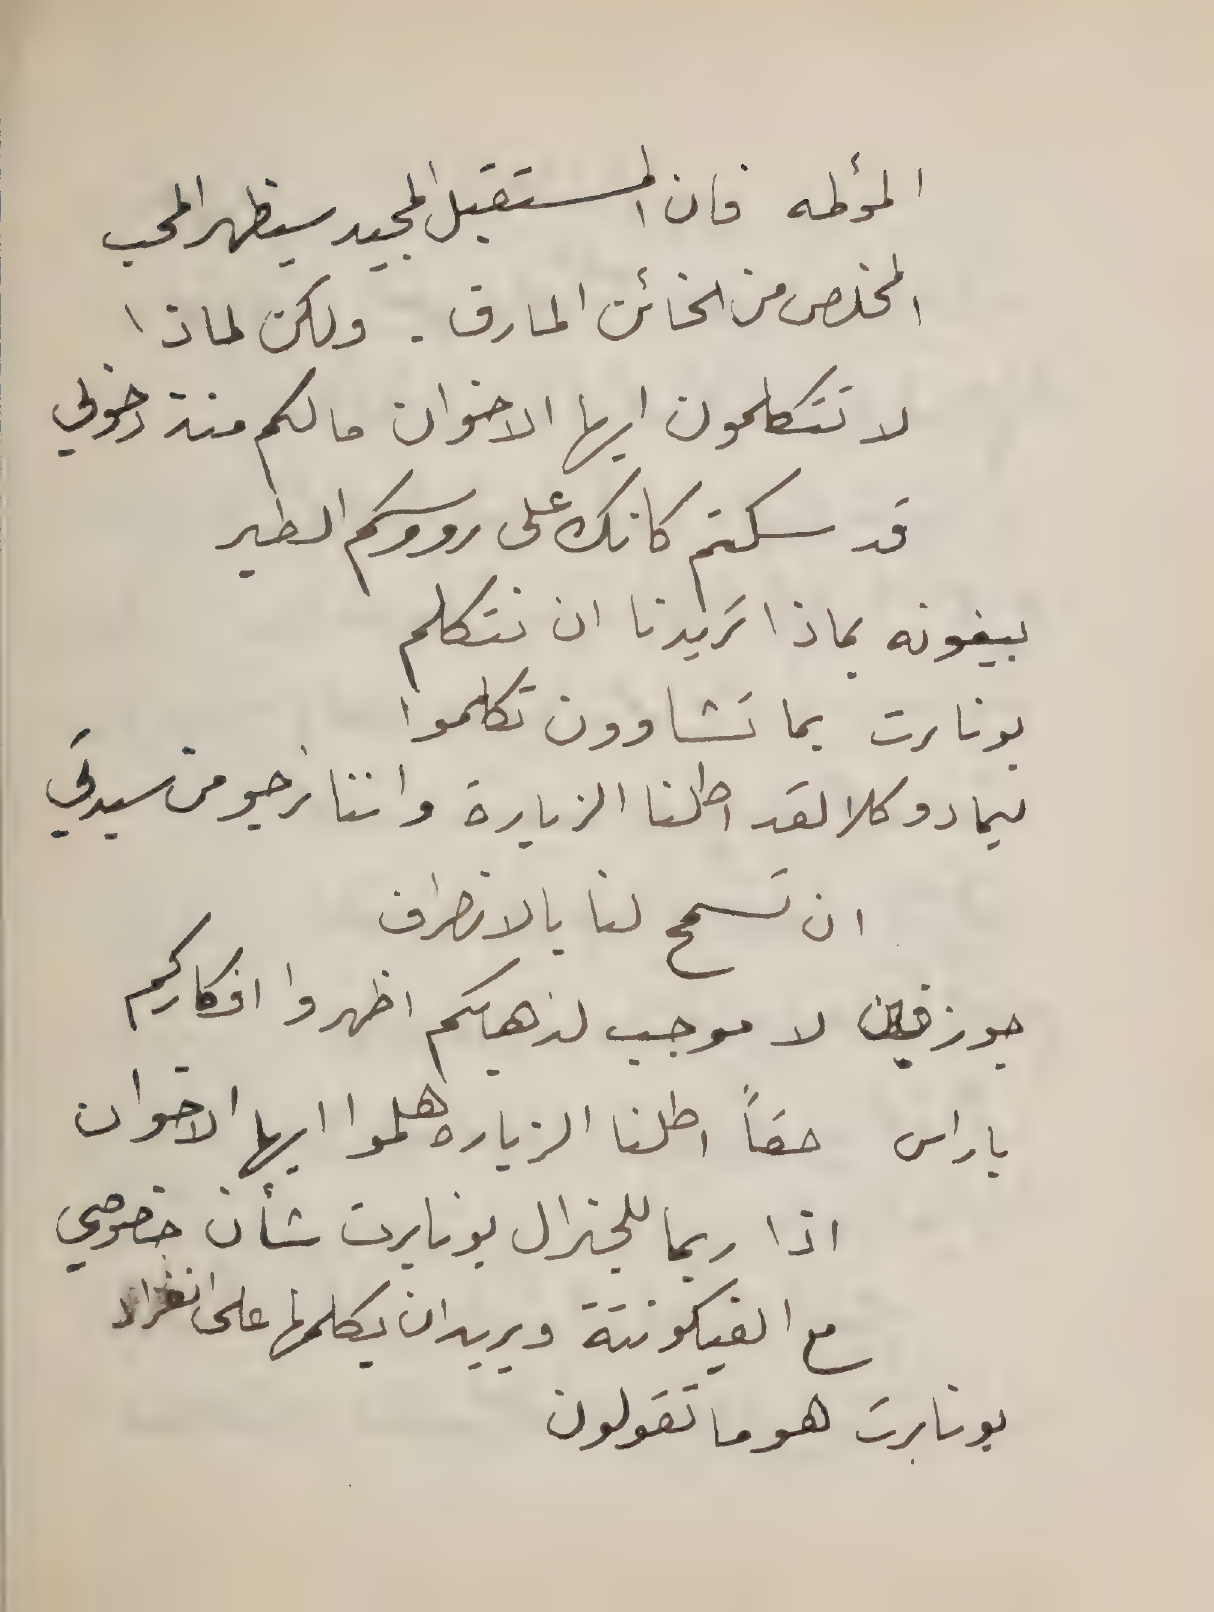 المؤطه فان المستقبل المجيد سيظهر المحب
المخلص من الخائن المارق . ولكن لماذا
لا تتكلمون ايها الاخوان مالكم منذ دخولي
قد سكتم كانك على رووسكم الطير
بيفونه بماذا تريدنا ان نتكلم
بونابرت بما تشاوون تكلموا
ليمادو كلا لقد اطلنا الزيارة واننا نرجو من سيدتي
ان تسمح لنا بالانصراف
جوزفين لا موجب لذهابكم اظهروا افكاركم
باراس حقاً اطلنا الزياره هلموا ايها الاخوان
اذا ربما للجنرال بونابرت شأن خصوصي
مع الفيكونتة ويريد ان يكلمها على انفراد
بونابرت هو ما تقولون